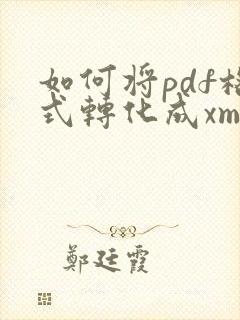 如何将pdf格
式轉化成xm
鄭廷霞